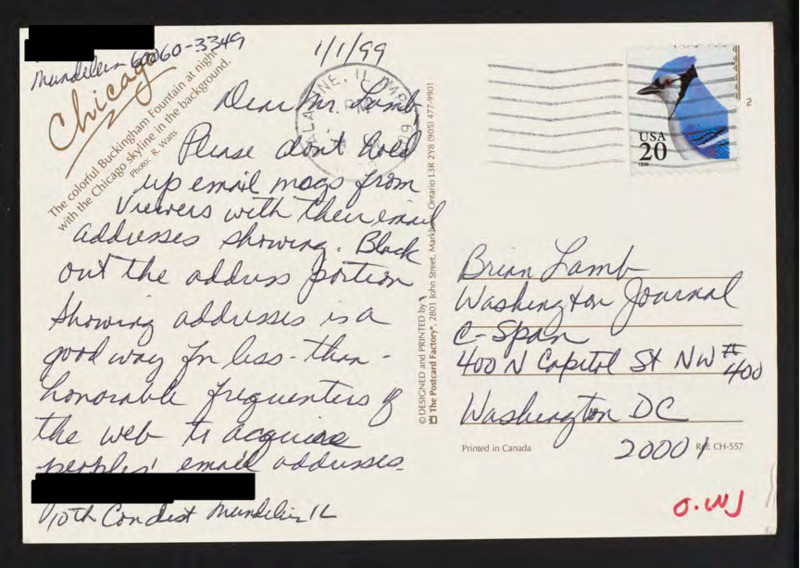 Mundelein 60060-3349
1/1/99
Chicago
The colorful Buckingham Fountain at night
with the Chicago skyline in the background.
Photo: R. Watts
Dear Mr. Lamb
Please don't hold
up email msgs from
Viewers with their email
addresses showing. Black
out the address portion
Showing addresses is a
good way for less-than-
honorable frequenters of
the web to acquire
peoples' email addresses.
10th Con dist Mundelein IL
© DESIGNED and PRINTED by
The Postcard Factory®, 2801 John Street, Markham, Ontario L3R 2Y8 (905) 477-9901
PALATINE, IL
PM
USA
20
1996
2
Brian Lamb
Washington Journal
C-Span
400 N Capitol St NW #400
Washington DC
20001
Printed in Canada
Ref: CH-557
O.WJ